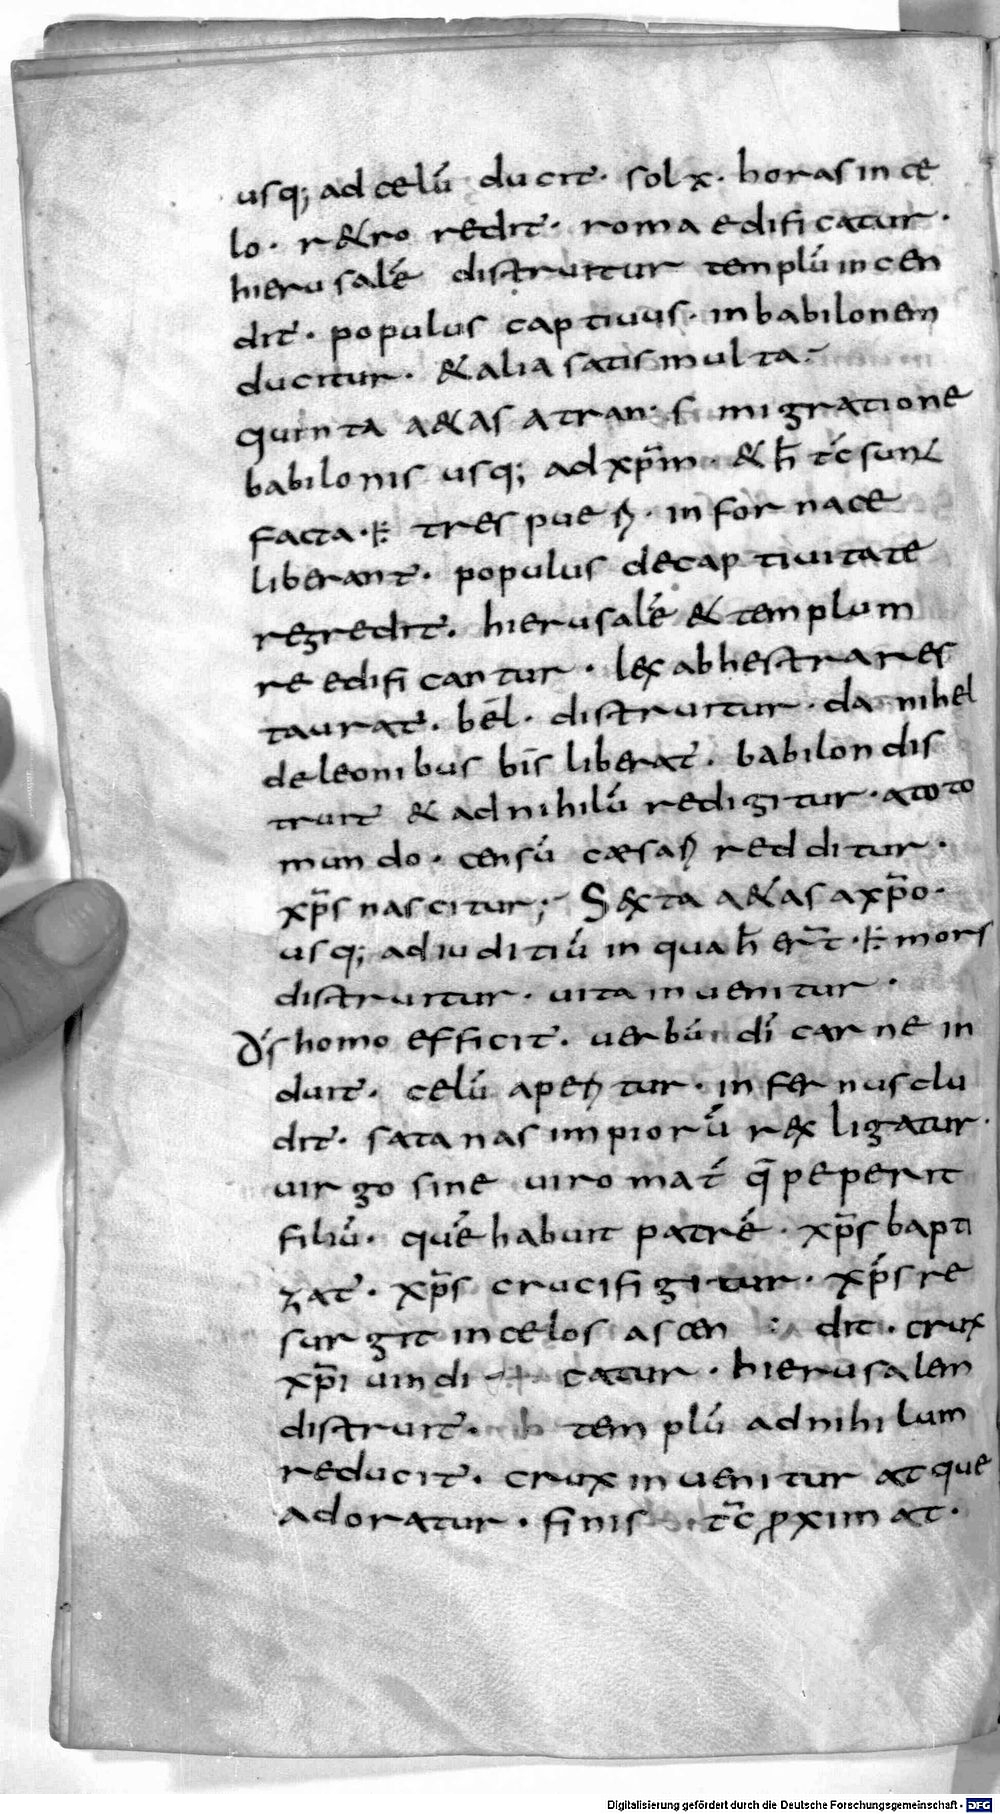 usq; ad celū ducit̄· sol x· horas in ce
lo· r&ro redit̄· roma edificatur·
hierusalē distruitur templū incen
dit̄· populus captiuus· in babilonem
ducitur· & alia satis multa·
quinta a&as a tran·s· migratione
babilonis usq; ad xp̄m· & h̄ t̄c sunt
facta· tres pueꝝ· in fornace
liberant̄· populus de captiuitate
regredit̄· hierusalē & templum
reedificantur· lex ab hestra res
taurat̄· bēl· distruitur· da nihel
de leonibus bīs liberat̄· babilon dis
truit̄ & ad nihilū redigitur· a toto
mundo· censū cæsaꝝ redditur·
xp̄s nascitur; S&xta a&as a xp̄o·
usq; ad iuditiū in qua h̄ er̄t· mors
distruitur· uita inuenitur·
d̄s homo efficit̄· uerbū dī carne in
duit̄· celū apeꝝtur· infernus clu
dit̄· satanas impiorū rex ligatur·
uirgo sine uiro mat̄ q̄ peperit
filiū· quē habuit patrē· xp̄s bapti
zat̄· xp̄s crucifigitur· xp̄s re
surgit in celos ascen dit· crux
xp̄i uindi catur· hierusalem
distruit̄· templū ad nihilum
reducit̄· crux inuenitur atque
adoratur· finis t̄c ꝓximat·